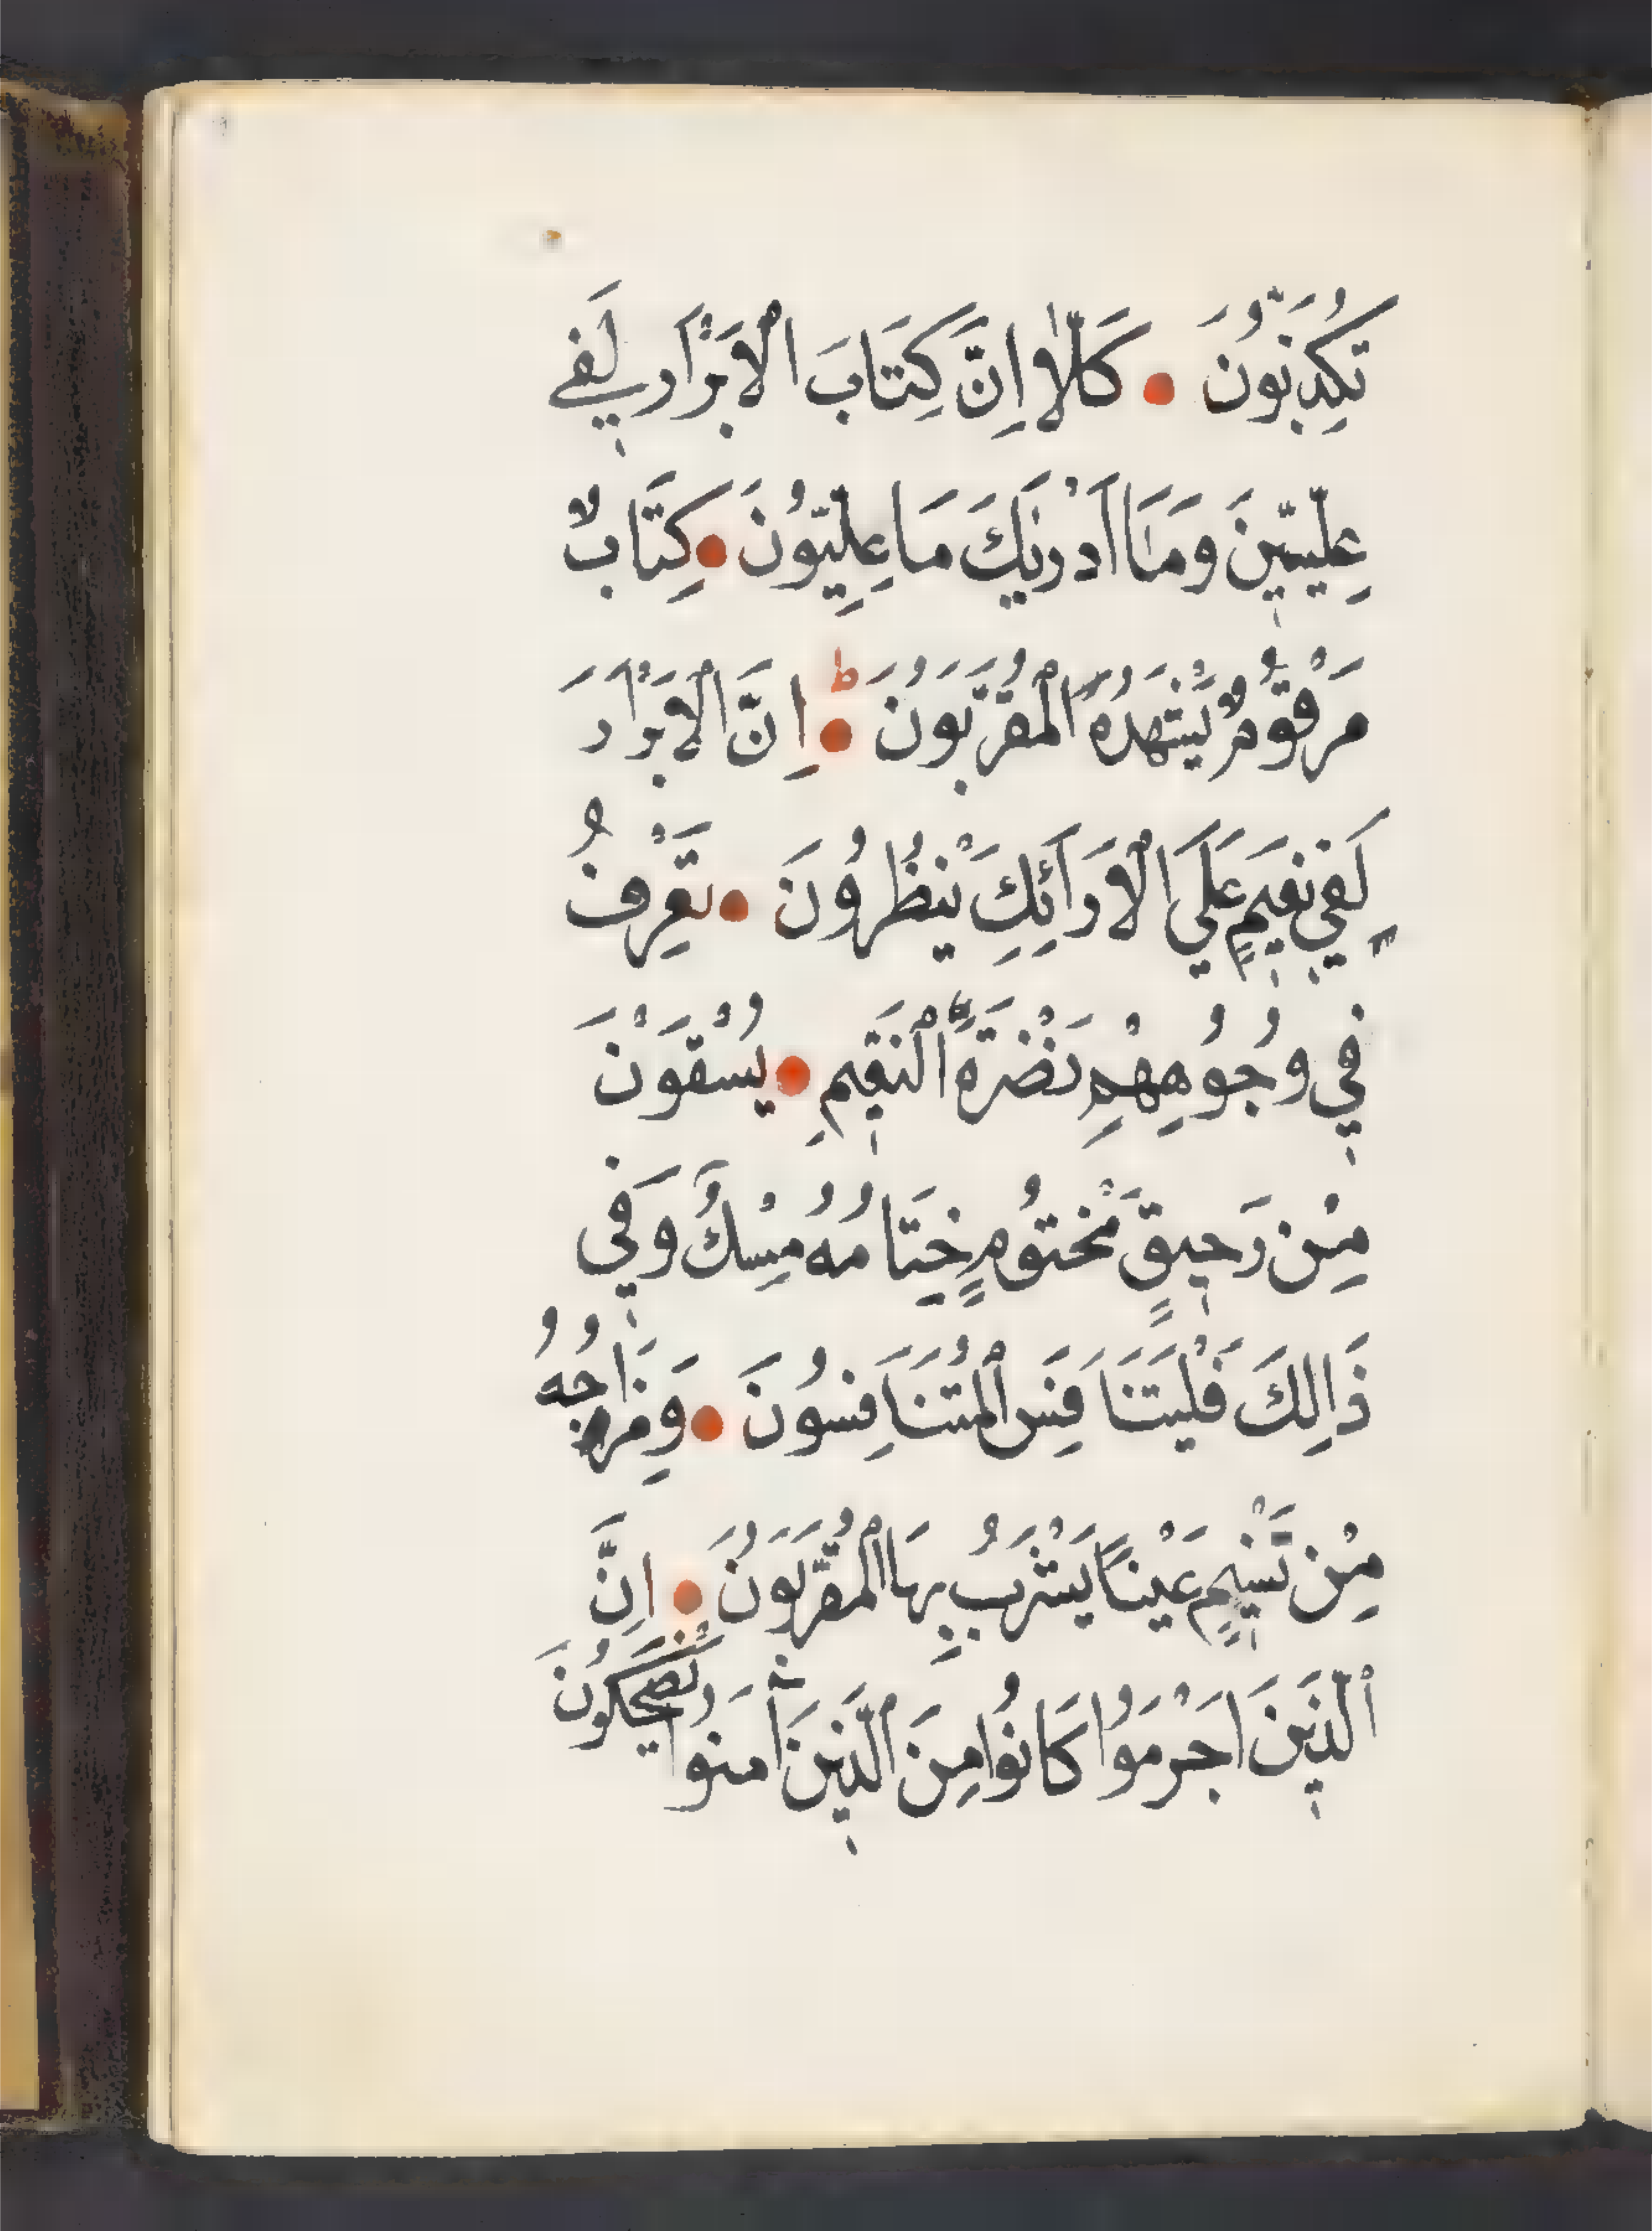 تُكَذِّبُونَ كَلَّا إِنَّ كِتَابَ الْاَبْرَارِ لَفِي
عِلِّيِّينَ وَمَا اَدْرٰيكَ مَا عِلِّيُّونَ كِتَابٌ
مَرْقُومٌ يَشْهَدُهُ الْمُقَرَّبُونَ ط إِنَّ الْاَبْرَارَ
لَفِي نَعِيمٍ عَلَي الْاَرَائِكِ يَنْظُرُونَ تَعْرِفُ
فِي وُجُوهِهِمْ نَضْرَةَ النَّعِيمِ يُسْقَوْنَ
مِنْ رَحِيقٍ مَخْتُومٍ خِتَامُهُ مِسْكٌ وَفِي
ذَالِكَ فَلْيَتَنَافَسِ الْمُتَنَافِسُونَ وَمِزَاجُهُ
مِنْ تَسْنِيمٍ عَيْنًا يَشْرَبُ بِهَا الْمُقَرَّبُونَ اِنَّ
الَّذِينَ اَجْرَمُوا كَانُوا مِنَ الَّذِينَ اٰمَنُوا يَضْحَكُونَ